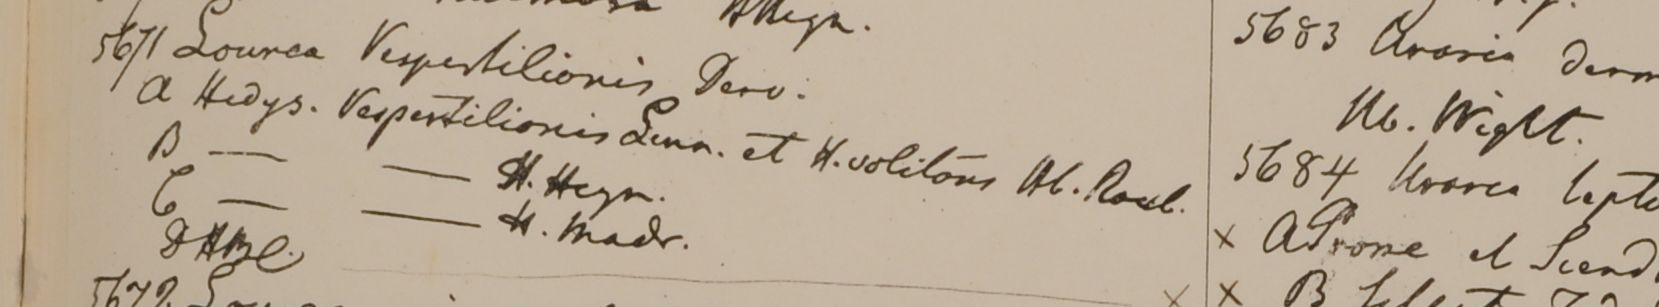 Hheyn.
5671 Lourea Vespertilionis Desv.
A Hedys. Vespertilionis Linn. et H. volitans Hb. Roxb.
B — — H. Heyn.
C — — H. Madr.
D HBC
5672
5683 Uraria
Hb. Wight.
5684 Uraria lepto
x A Prome et
x x B